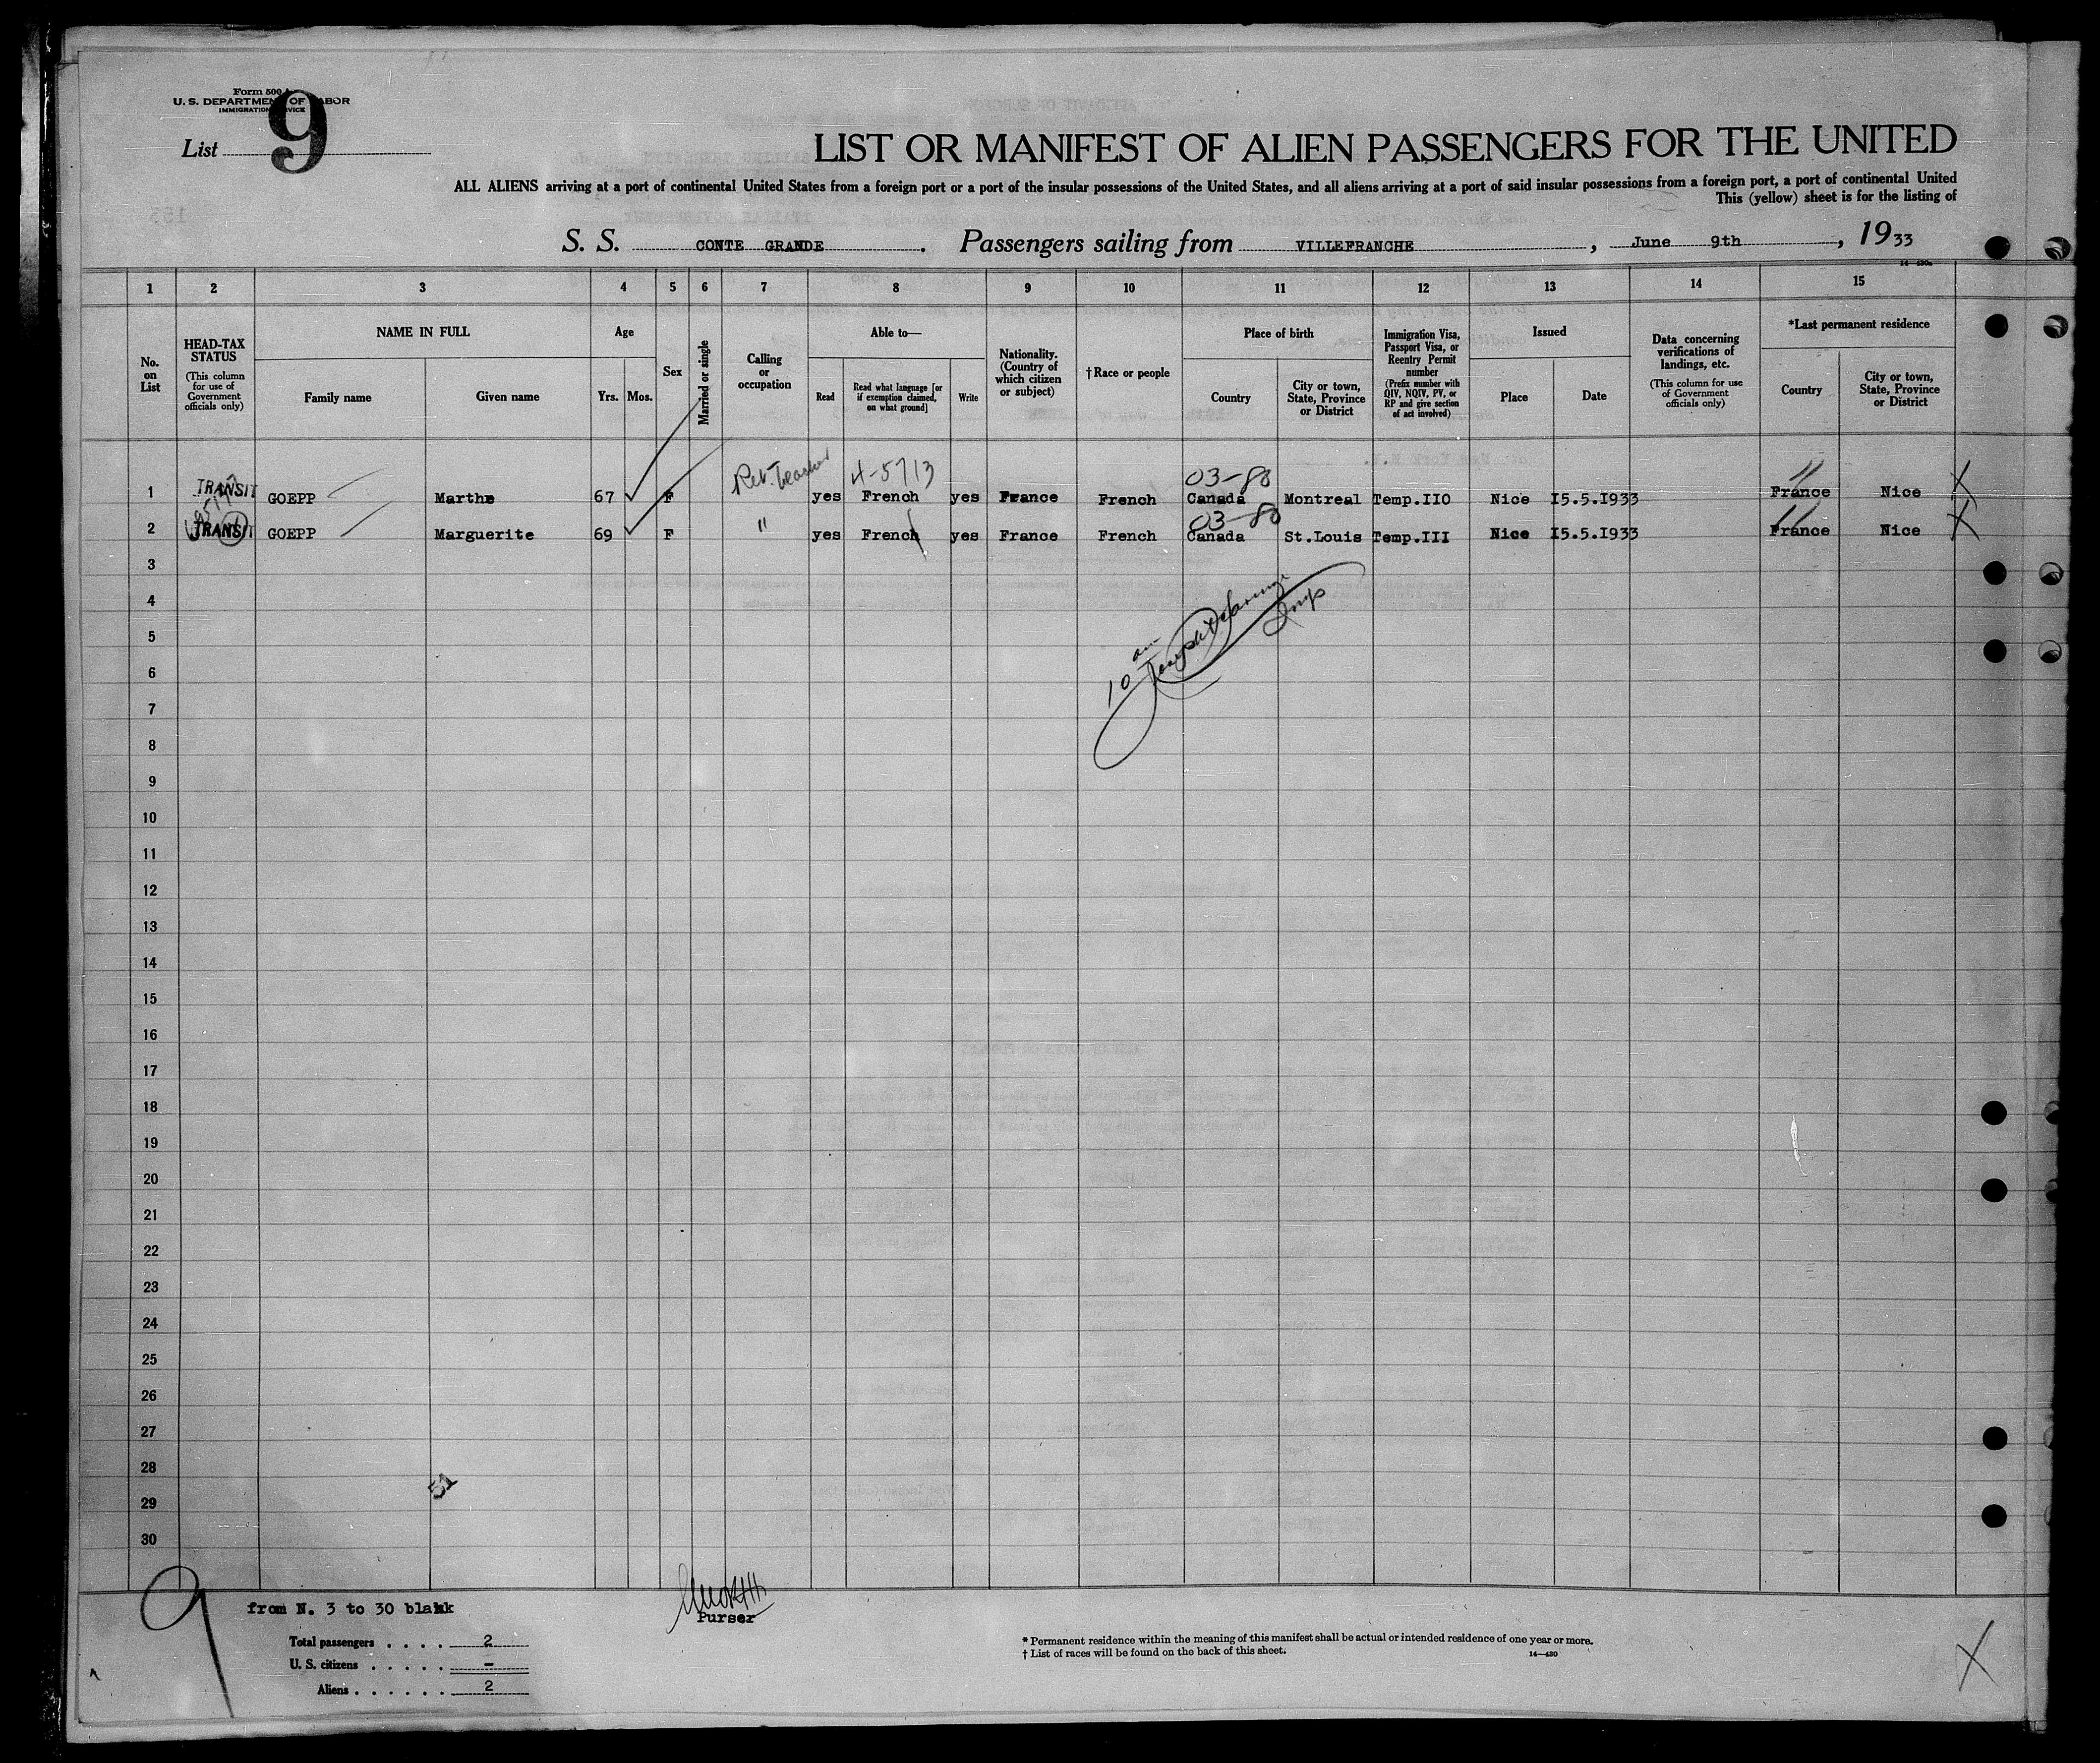 Form 500 A
U. S. DEPARTMENT OF LABOR
IMMIGRATION SERVICE
List 9
LIST OR MANIFEST OF ALIEN PASSENGERS FOR THE UNITED
ALL ALIENS arriving at a port of continental United States from a foreign port or a port of the insular possessions of the United States, and all aliens arriving at a port of said insular possessions from a foreign port, a port of continental United
This (yellow) sheet is for the listing of
S. S. CONTE GRANDE. Passengers sailing from VILLEFRANCHE, June 9th, 1933
1 2 3 4 5 6 7 8 9 10 11 12 13 14 15
No. on List
HEAD-TAX STATUS (This column for use of Government officials only)
NAME IN FULL
Family name
Given name
Age
Yrs. Mos.
Sex
Married or single
Calling or occupation
Able to—
Read
Read what language [or if exemption claimed, on what ground]
Write
Nationality. (Country of which citizen or subject)
†Race or people
Place of birth
Country
City or town, State, Province or District
Immigration Visa, Passport Visa, or Reentry Permit number (Prefix number with QIV, NQIV, PV, or RP and give section of act involved)
Issued
Place
Date
Data concerning verifications of landings, etc. (This column for use of Government officials only)
*Last permanent residence
Country
City or town, State, Province or District
Ret. Teacher 4-5713 03-80 11
1 TRANSIT GOEPP Marthe 67 F yes French yes France French Canada Montreal Temp.IIO Nice I5.5.I933 France Nice X
03-80 11
2 TRANSIT GOEPP Marguerite 69 F " yes French yes France French Canada St.Louis Temp.III Nice I5.5.I933 France Nice X
3
4
5
10 am Insp
6
7
8
9
10
11
12
13
14
15
16
17
18
19
20
21
22
23
24
25
26
27
28
51
29
30
9
from N. 3 to 30 blank
Purser
Total passengers . . . . 2
U. S. citizens . . . . . -
Aliens . . . . . . 2
* Permanent residence within the meaning of this manifest shall be actual or intended residence of one year or more.
† List of races will be found on the back of this sheet.
14—430
X